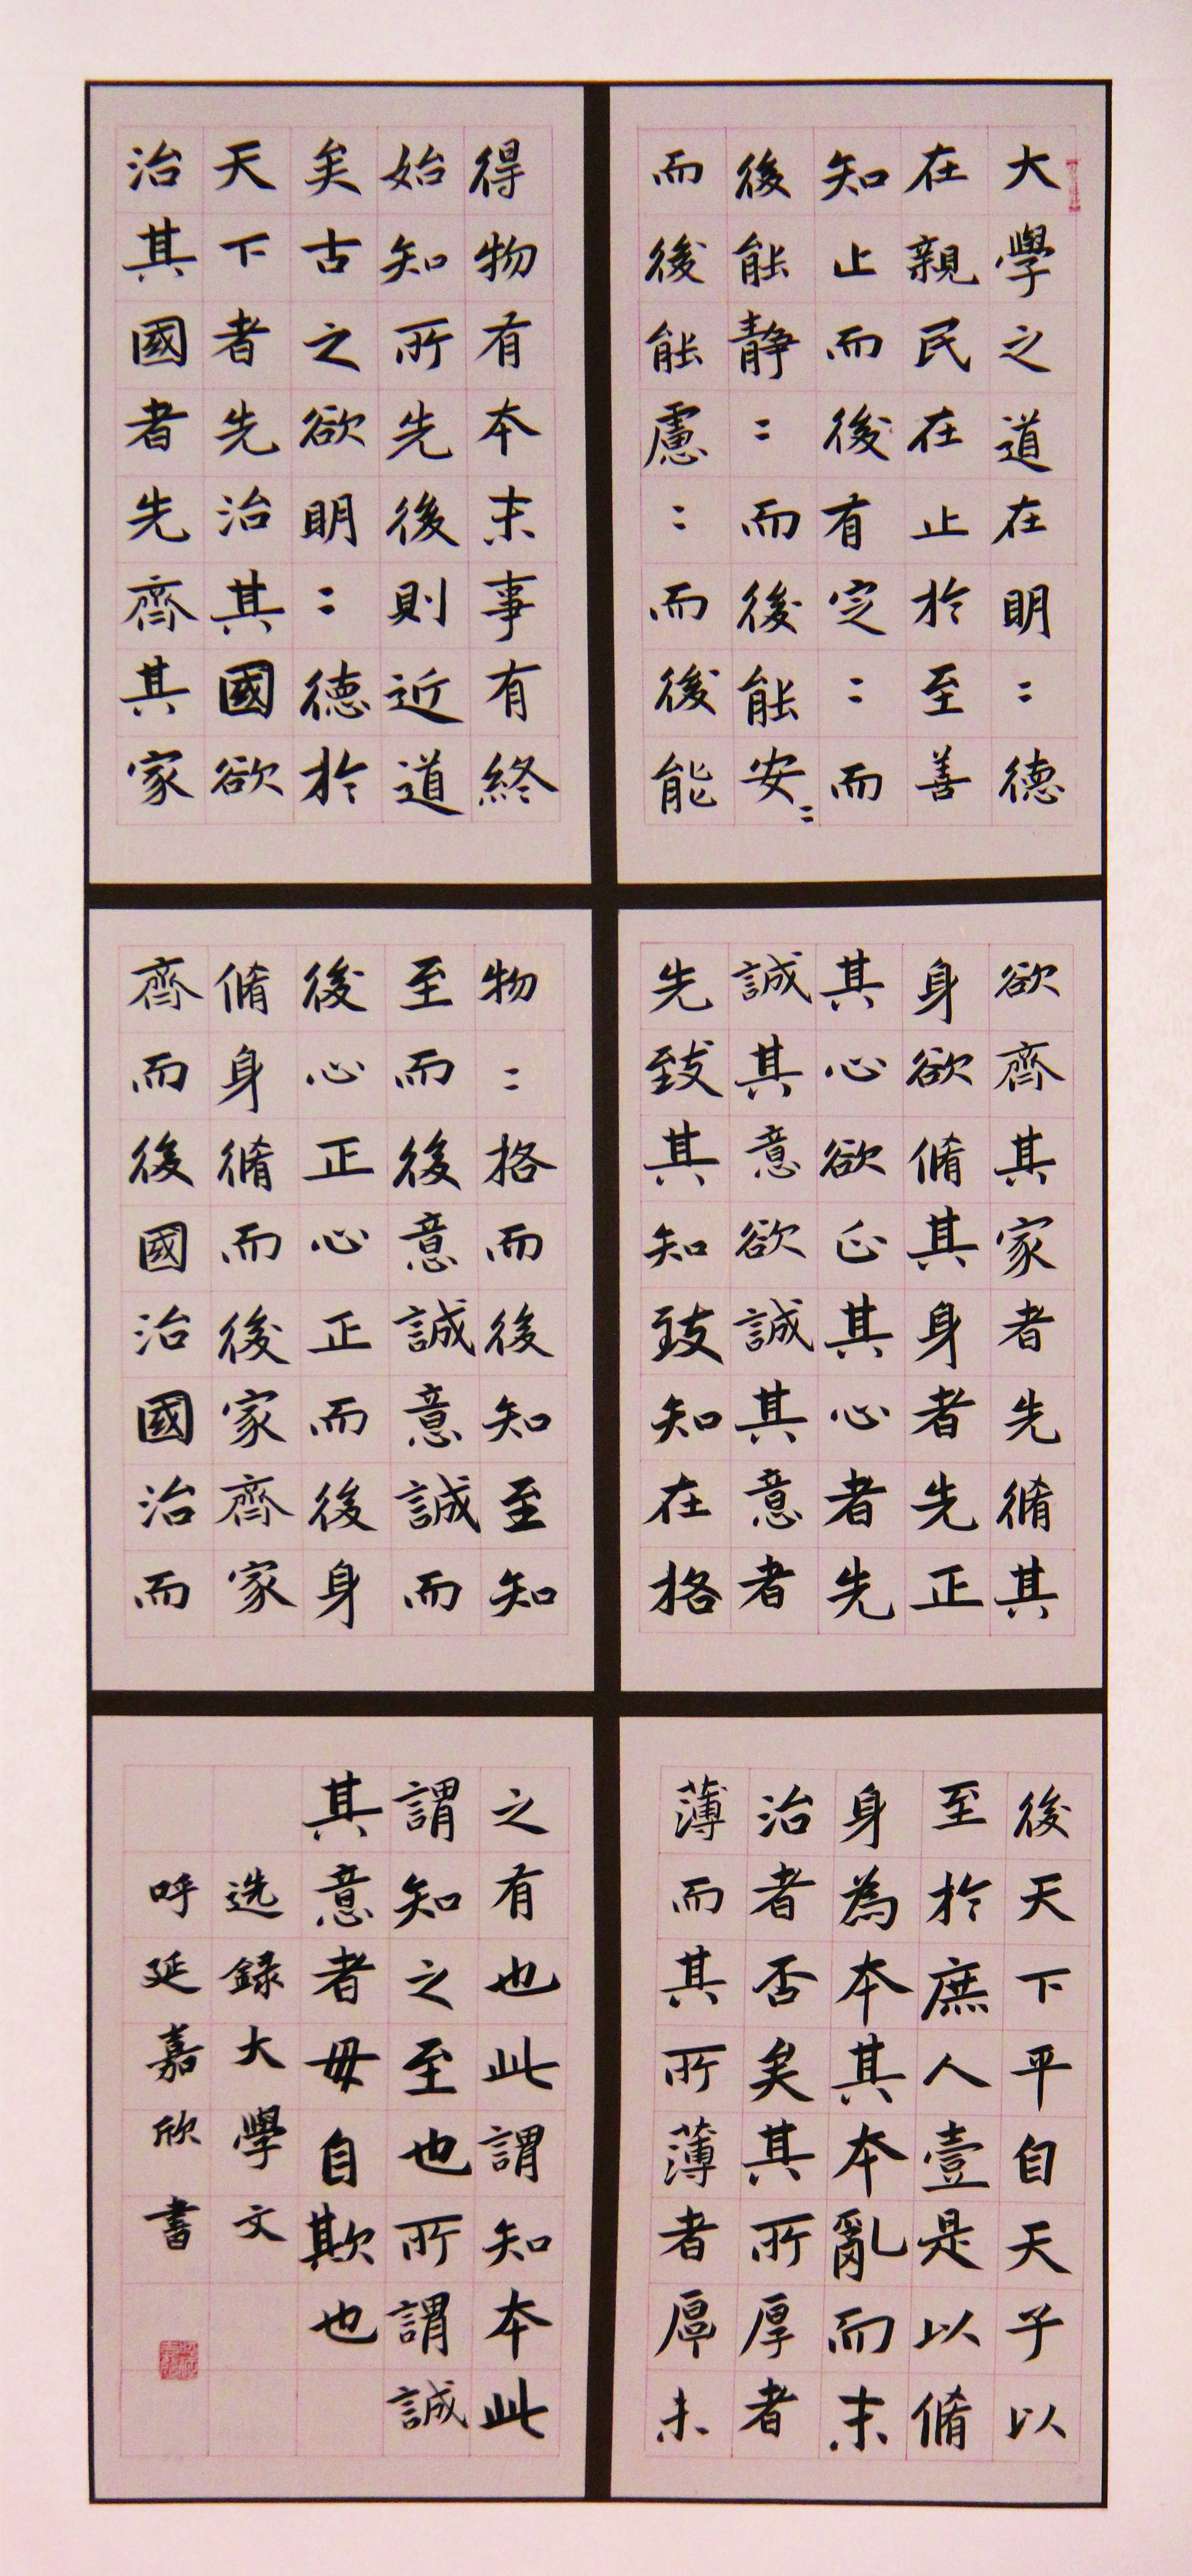 大學之道在明：德
在親民在止於至善
知止而後有定：而
後能静：而後能安：
而後能慮：而後能
得物有本末事有終
始知所先後則近道
矣古之欲明：德於
天下者先治其國欲
治其國者先齊其家
欲齊其家者先脩其
身欲脩其身者先正
其心欲正其心者先
誠其意欲誠其意者
先致其知致知在格
物：格而後知至知
至而後意誠意誠而
後心正心正而後身
脩身脩而後家齊家
齊而後國治國治而
後天下平自天子以
至於庶人壹是以脩
身為本其本亂而末
治者否矣其所厚者
薄而其所薄者厚未
之有也此謂知本此
謂知之至也所謂誠
其意者毋自欺也
选録大學文
呼延嘉欣書